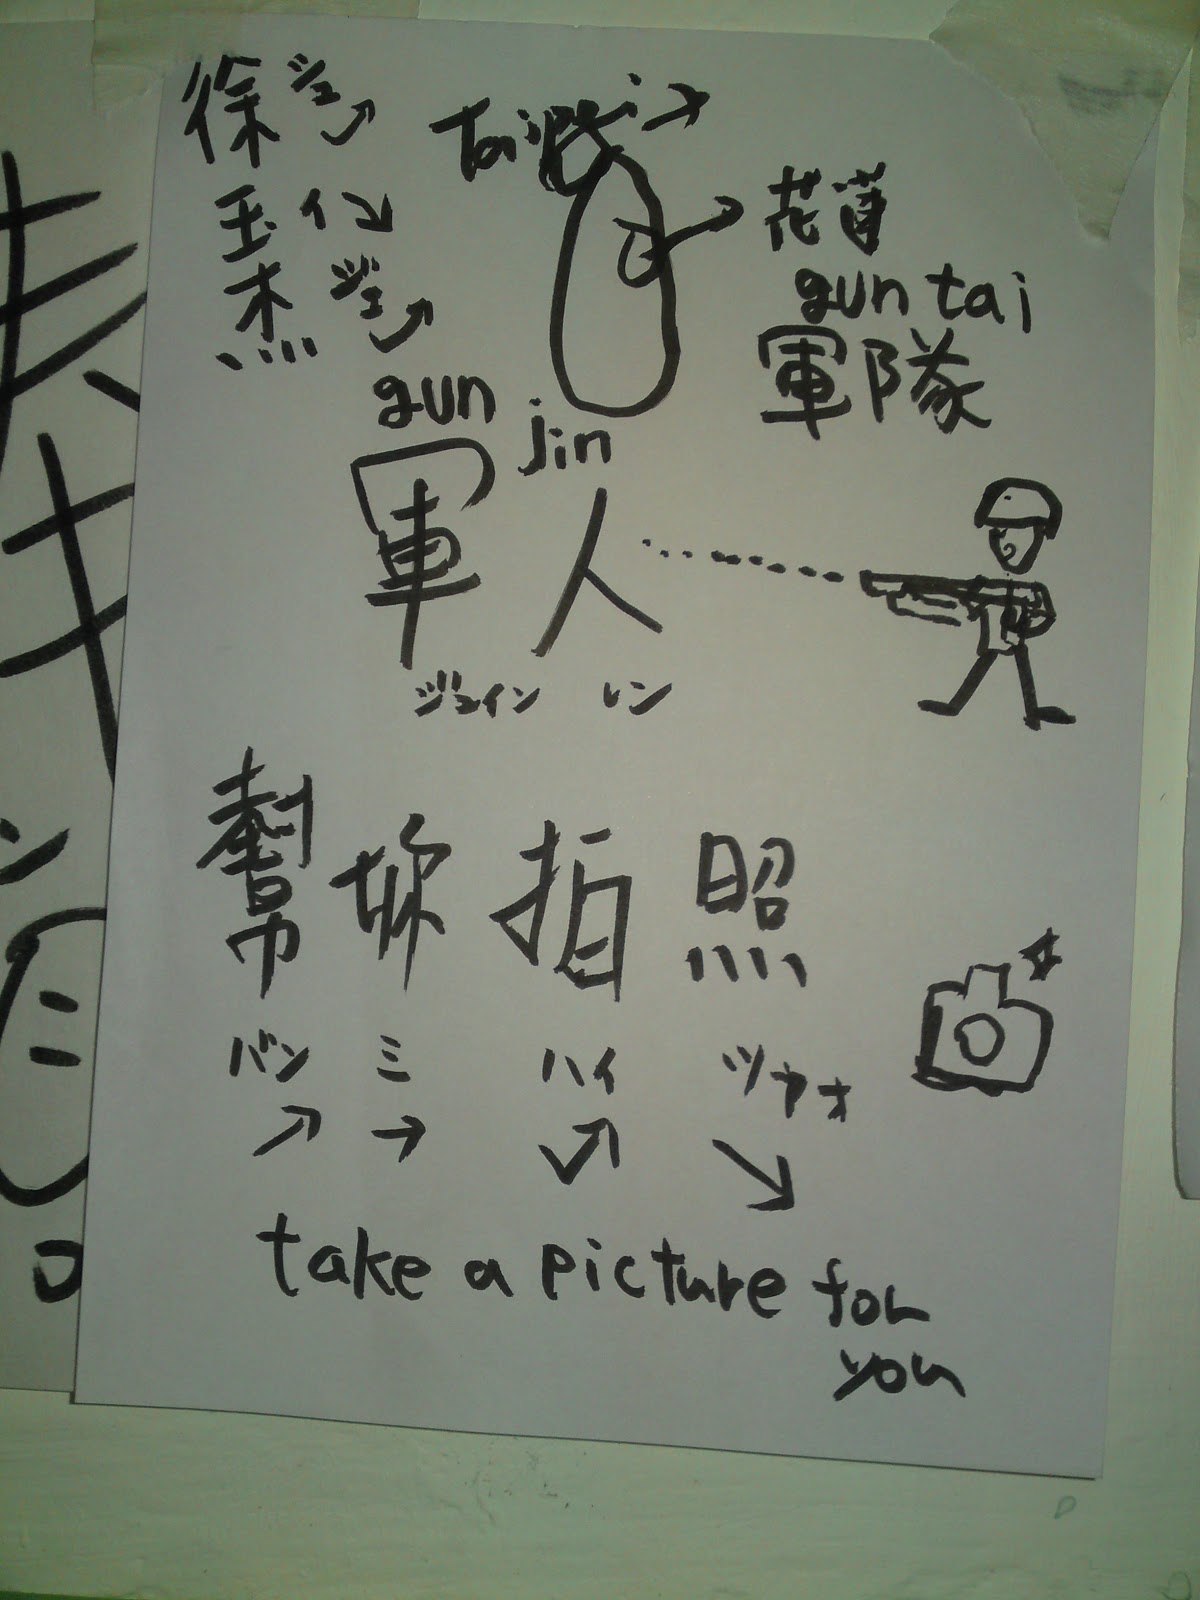 徐 シュ
玉 イュ
杰 ジェ
Taipei
花蓮
gun tai
軍隊
gun jin
軍人
ジュイン レン
幫妳拍照
バン ミ ハイ ツァオ
take a picture for
you